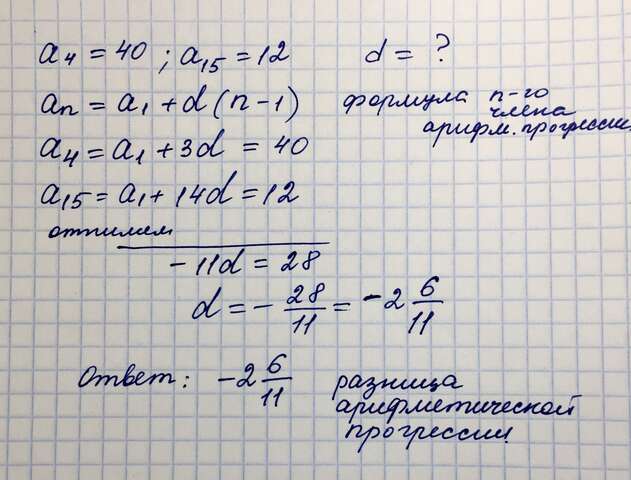 a₄ = 40 ; a₁₅ = 12 d = ?
aₙ = a₁ + d (n - 1) формула n-го
члена
арифм. прогрессии.
a₄ = a₁ + 3d = 40
a₁₅ = a₁ + 14d = 12
отнимем
- 11d = 28
d = - 28/11 = - 2 6/11
Ответ: - 2 6/11 разница
арифметической
прогрессии.